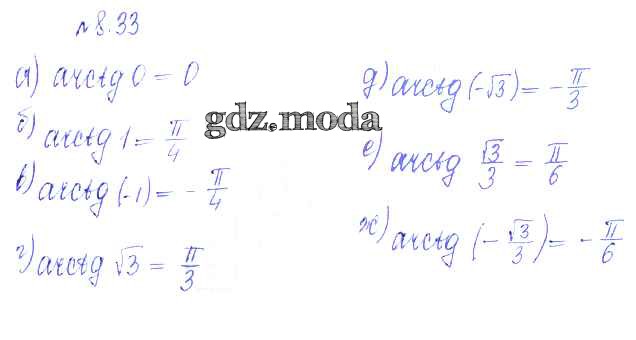 № 8.33
а) arctg 0 = 0
б) arctg 1 = π/4
в) arctg (-1) = - π/4
г) arctg √3 = π/3
д) arctg (-√3) = - π/3
е) arctg √3/3 = π/6
ж) arctg (- √3/3) = - π/6
gdz.moda